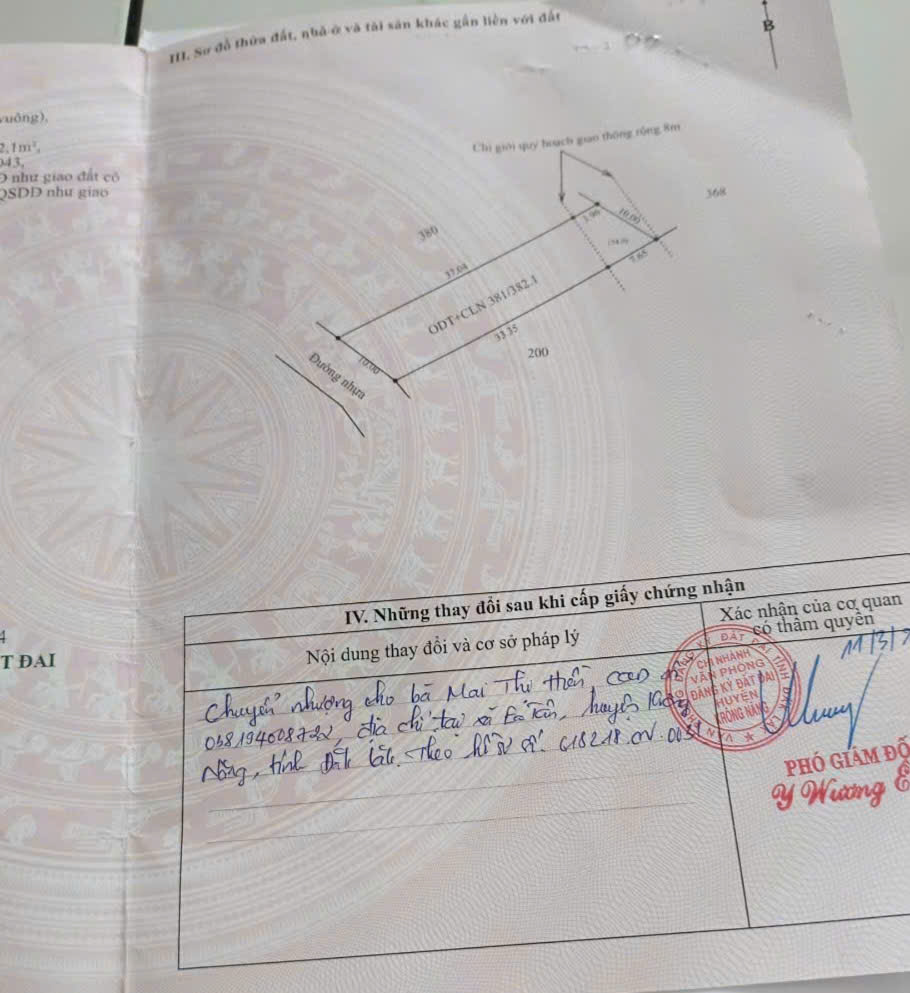 III. Sơ đồ thửa đất, nhà ở và tài sản khác gắn liền với đất
B
vuông).
2,1m²,
043,
Đ như giao đất có
QSDĐ như giao
Chỉ giới quy hoạch giao thông rộng 8m
368
380
3.96
10.00
7.65
37.04
ODT+CLN 381/382.1
33.35
200
10.00
Đường nhựa
4
T ĐAI
IV. Những thay đổi sau khi cấp giấy chứng nhận
Nội dung thay đổi và cơ sở pháp lý
Xác nhận của cơ quan
có thẩm quyền
Chuyển nhượng cho bà Mai Thị
địa chỉ tại xã Ea Tân, huyện Krông
Năng, tỉnh Đắk Lắk. Theo hồ sơ số
11/3/
CHI NHÁNH
VĂN PHÒNG
ĐĂNG KÝ ĐẤT ĐAI
HUYỆN
KRÔNG NĂNG
PHÓ GIÁM ĐỐ
Y Wương Ê